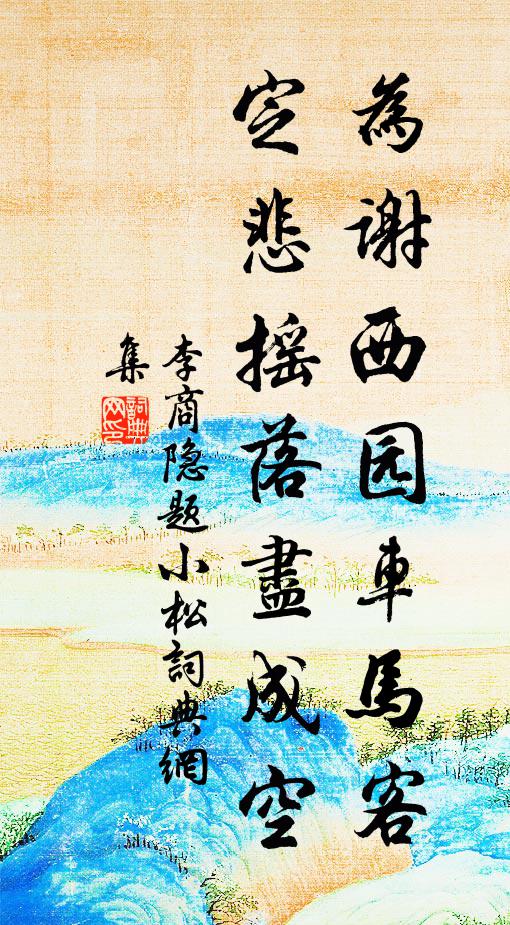 為謝西园車馬客
定悲摇落盡成空
李商隐题小松詞典網
集
詞典
网印